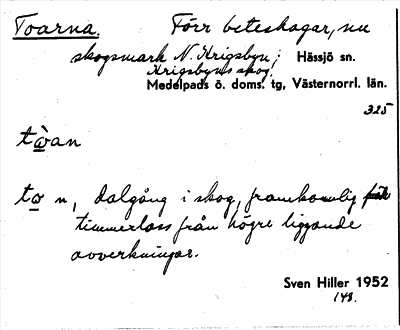 Toarna. Förr beteshagar, nu
skogsmark N. Krigsbyn; Hässjö sn.
Krigsbyns skog.
Medelpads ö. doms. tg, Västernorrl. län.
325
tὼan
tω n, dalgång i skog, framkomlig för
timmerlass från högre liggande
avverkningar.
Sven Hiller 1952
148.